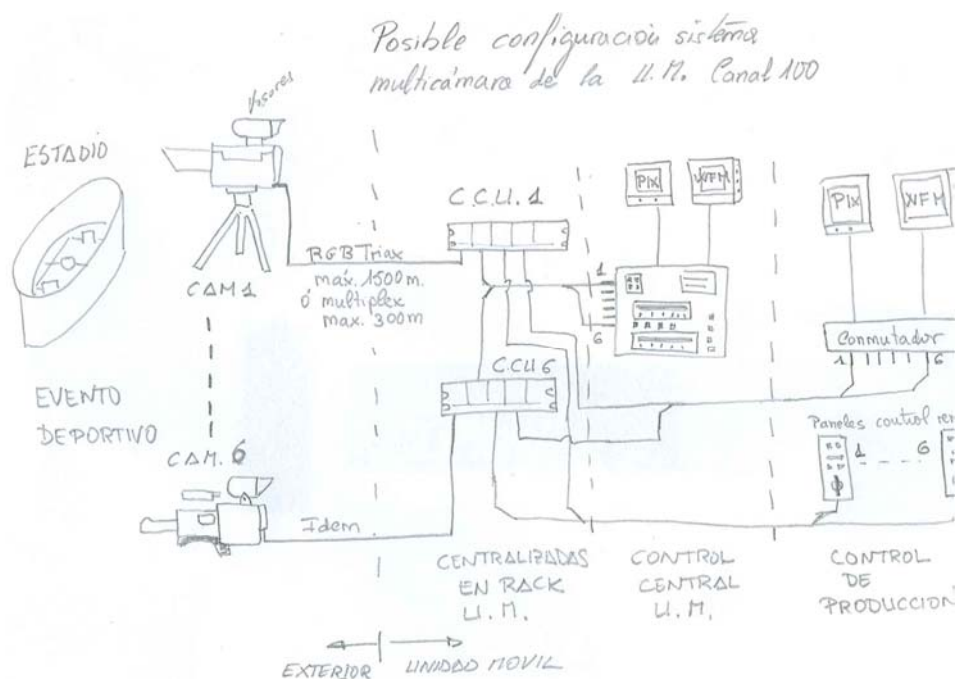 Posible configuración sistema
multicámara de la U.M. Canal 100
Visores
ESTADIO
CAM 1
RGB Triax
máx. 1500 m.
ó multiplex
max. 300 m
C.C.U. 1
PIX
WFM
1
6
PIX
WFM
Conmutador
1
6
C.CU 6
EVENTO
DEPORTIVO
CAM. 6
Idem
Paneles control rem
1
6
CENTRALIZADAS
EN RACK
U.M.
CONTROL
CENTRAL
U.M.
CONTROL
DE
PRODUCCION
EXTERIOR
UNIDAD MOVIL